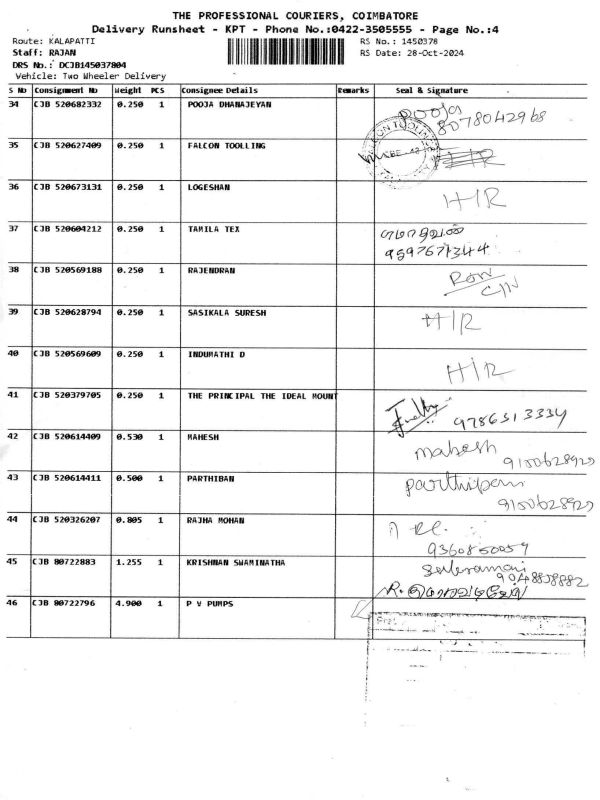 THE PROFESSIONAL COURIERS, COIMBATORE
Delivery Runsheet - KPT - Phone No.:0422-3505555 - Page No.:4
Route: KALAPATTI RS No.: 1450378
Staff: RAJAN RS Date: 28-Oct-2024
DRS No.: DCJB145037804
Vehicle: Two Wheeler Delivery
S No Consignment No Weight PCS Consignee Details Remarks Seal & Signature
34 CJB 520682332 0.250 1 POOJA DHANAJEYAN Pooja
8078042968
35 CJB 520627409 0.250 1 FALCON TOOLLING H/R
36 CJB 520673131 0.250 1 LOGESHAN H/R
37 CJB 520604212 0.250 1 TAMILA TEX
9597671344
38 CJB 520569188 0.250 1 RAJENDRAN
39 CJB 520628794 0.250 1 SASIKALA SURESH H/R
40 CJB 520569609 0.250 1 INDUMATHI D H/R
41 CJB 520379705 0.250 1 THE PRINCIPAL THE IDEAL MOUNT 9786313334
42 CJB 520614409 0.530 1 MAHESH Mahesh
9100628920
43 CJB 520614411 0.500 1 PARTHIBAN Parthipan
9100628920
44 CJB 520326207 0.805 1 RAJHA MOHAN
9360850059
45 CJB 80722883 1.255 1 KRISHNAN SWAMINATHA
9048838882
46 CJB 80722796 4.900 1 P V PUMPS